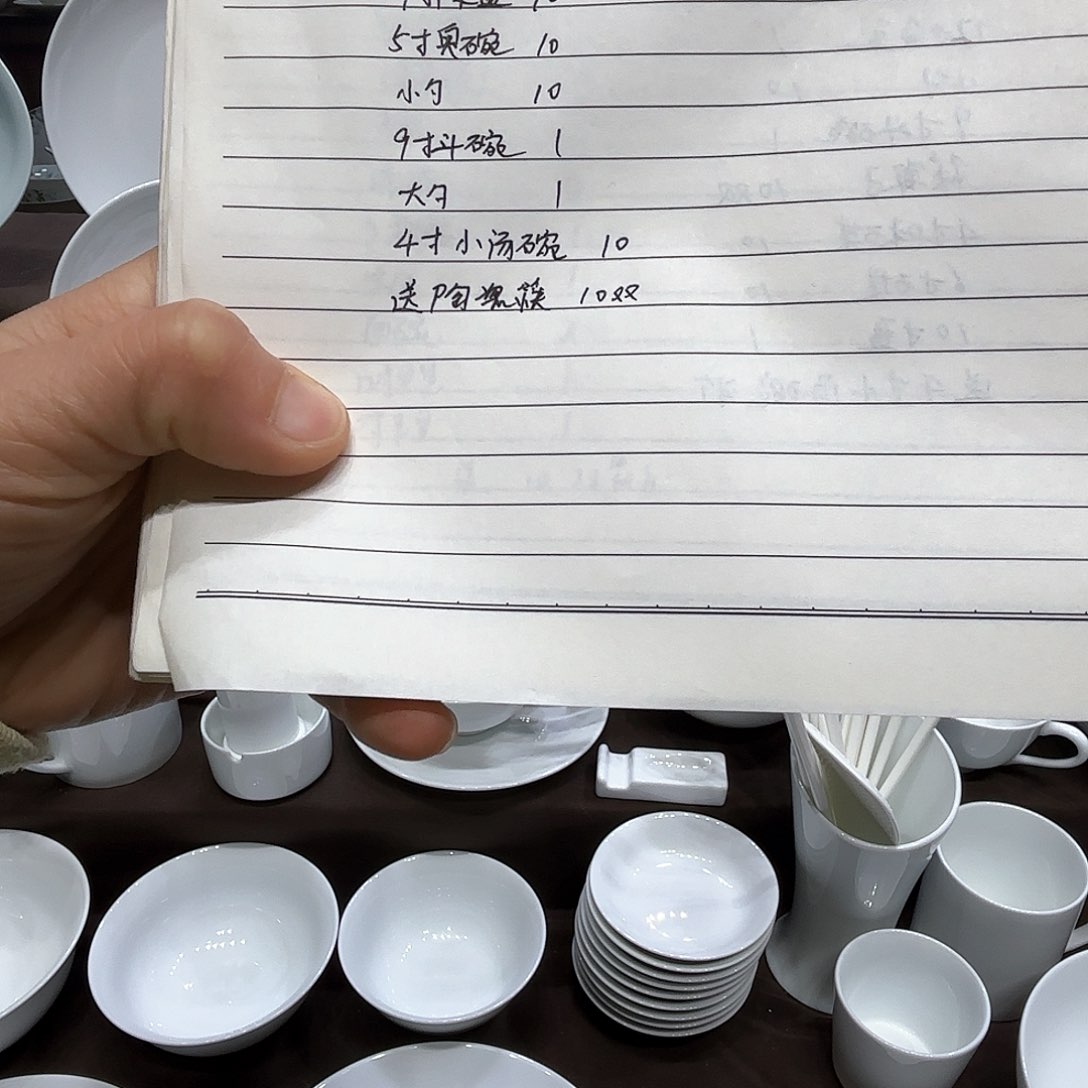 5寸奥碗 10
小勺 10
9寸斗碗 1
大勺 1
4寸小汤碗 10
送陶瓷筷 10双